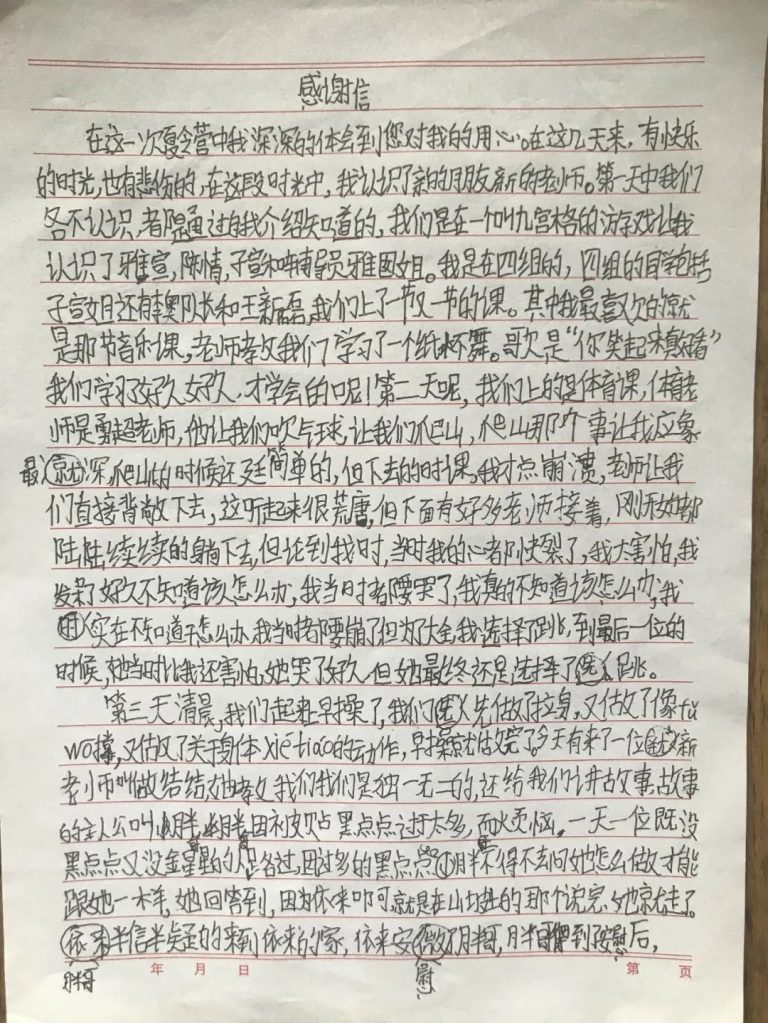 感谢信
在这一次夏令营中我深深的体会到您对我的用心。在这几天来，有快乐
的时光，也有悲伤的，在这段时光中，我认识了新的朋友新的老师。第一天中我们
各不认识，都是通过自我介绍知道的，我们是在一个叫九宫格的游戏让我
认识了雅宣，陈情，子宣和辅导员雅囡姐。我是在四组的，四组的同学包括
子宣姐还有李奥队长和王新磊，我们上了一节又一节的课。其中我最喜欢的就
是那节音乐课，老师教我们学习了一个纸杯舞。歌是“你笑起来真好看”
我们学习了好久好久，才学会的呢！第二天呢，我们上的是体育课，体育老
师是勇超老师，他让我们吹气球，让我们爬山，爬山那个事让我应象
最深，爬山的时候还廷简单的，但下去的时课，我才点崩溃，老师让我
们直接背敞下去，这听起来很荒唐，但下面有好多老师接着，刚开始都
陆陆续续的躺下去，但论到我时，当时我的心都快裂了，我太害怕，我
发呆了好久不知道该怎么办，我当时都要哭了，我真的不知道该怎么办，我
实在不知道怎么办我当时都要崩了但为了大全，我选择了跳，到最后一位的
时候，她当时比我还害怕，她哭了好久，但她最终还是选择了跳。
第三天清晨，我们起来早操了，我们先做了拉身，又做了像fǔ
wò撑，又做了关于身体xiétiáo的动作，早操就做完了。今天有来了一位新
老师叫做结结，她教我们我们是独一无二的，还给我们讲故事，故事
的主人公叫小胖，胖因被贴黑点点过于太多，而烦恼。一天一位既没
黑点点又没金星星的人路过，因过多的黑点点胖不得不去问她怎么做才能
跟她一样，她回答到，因为依来 就是在山坡的那个说完，她就走了。
胖半信半疑的来到依来的家，依来安慰了胖哥，胖哥得到安慰后，
年 月 日
第 页